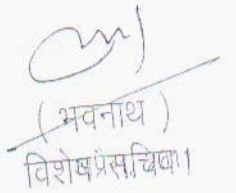 ( भवनाथ )
विशेष सचिव।